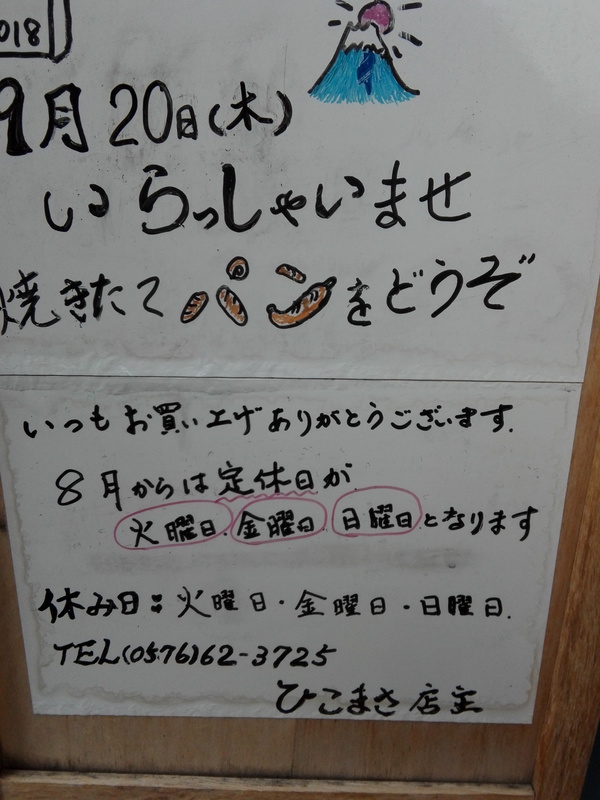 2018
9月20日(木)
いらっしゃいませ
焼きたてパンをどうぞ
いつもお買い上げありがとうございます.
8月からは定休日が
火曜日.金曜日.日曜日となります
休み日:火曜日・金曜日・日曜日.
TEL(0576)62-3725
ひこまさ店主